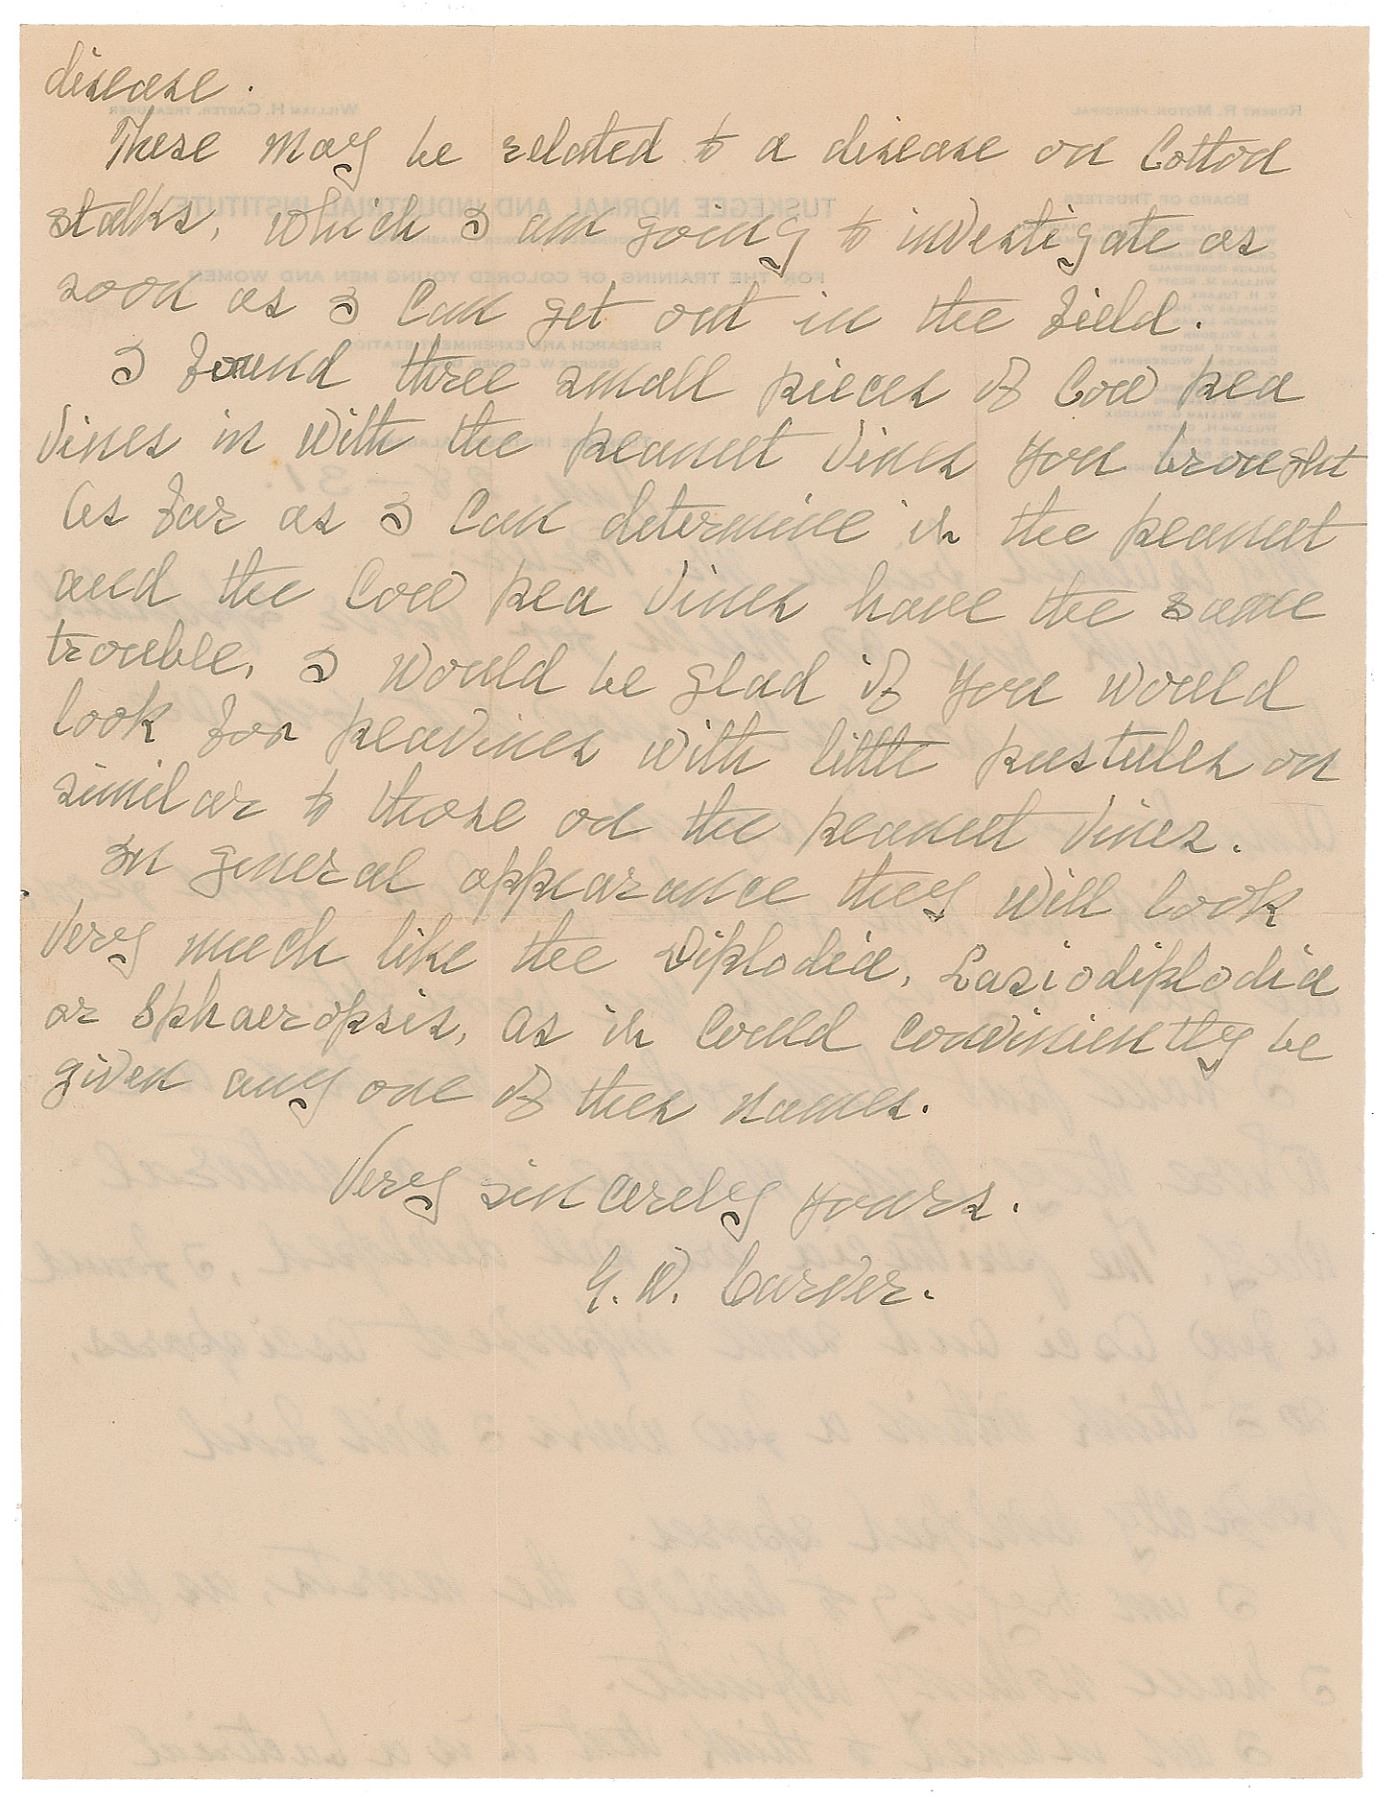 disease.
These may be related to a disease on Cotton
stalks, which I am going to investigate as
soon as I can get out in the field.
I found three small pieces of Cow pea
vines in with the peanut vines you brought
As far as I can determine it the peanut
and the Cow pea vines have the same
trouble, I would be glad if you would
look for peavines with little pustules on
similar to those on the peanut vines.
In general appearance they will look
very much like the Diplodia, Lasiodiplodia
or Sphaeropsis, as it could conviniently be
given any one of thes names.
Very sincerely yours.
G. W. Carver.